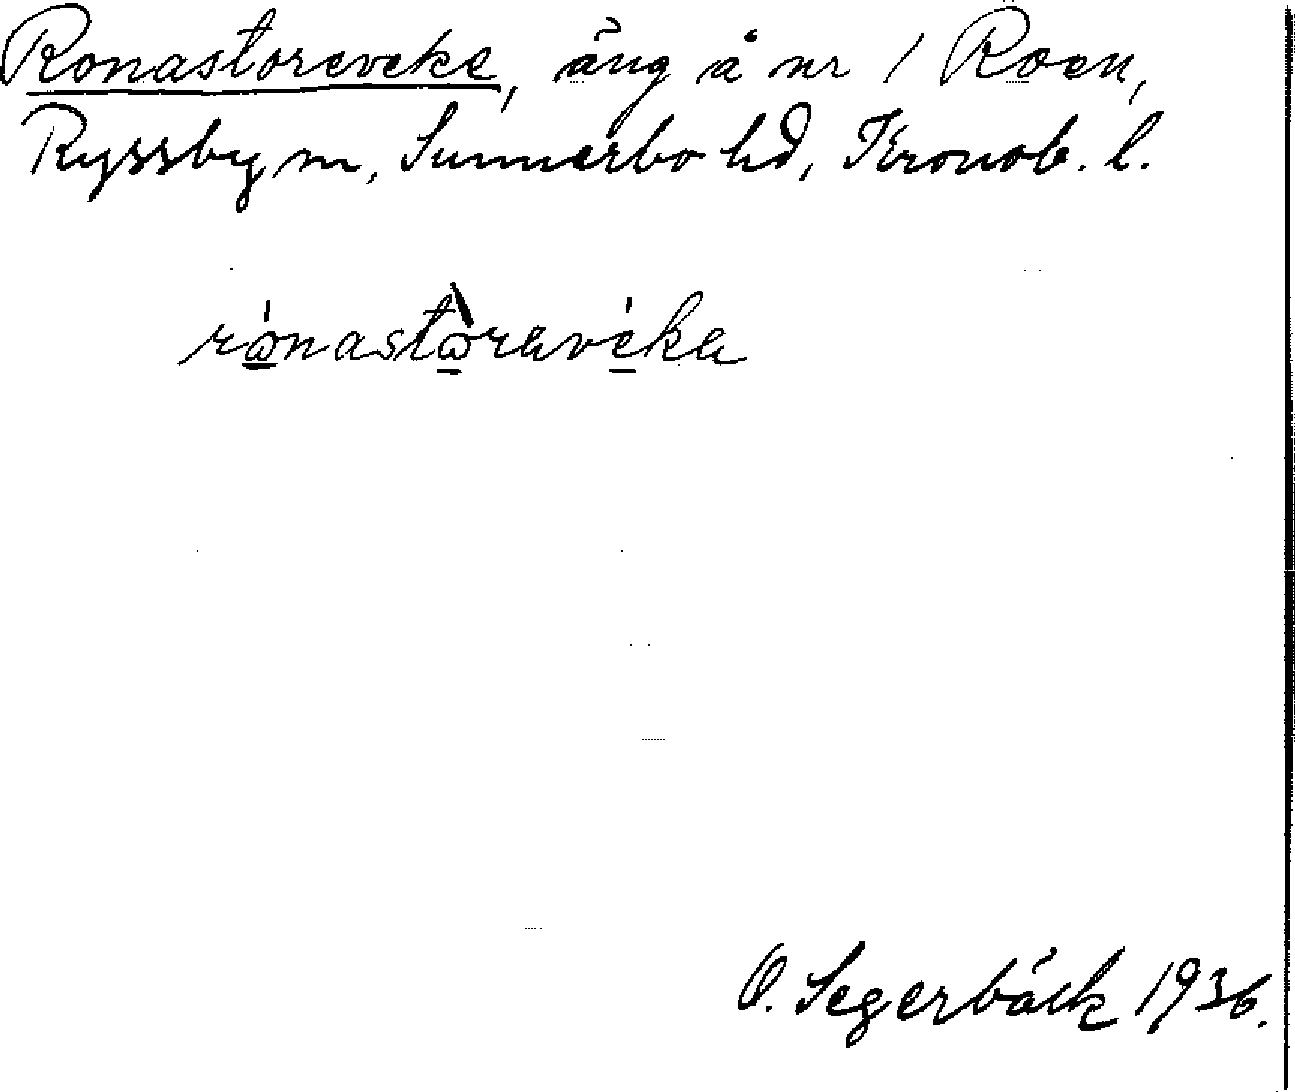 Ronastoreveke, äng å nr 1 Roen,
Ryssby sn, Sunnerbo hd, Kronob. l.
rónastòraveka
O. Segerbäck 1936.